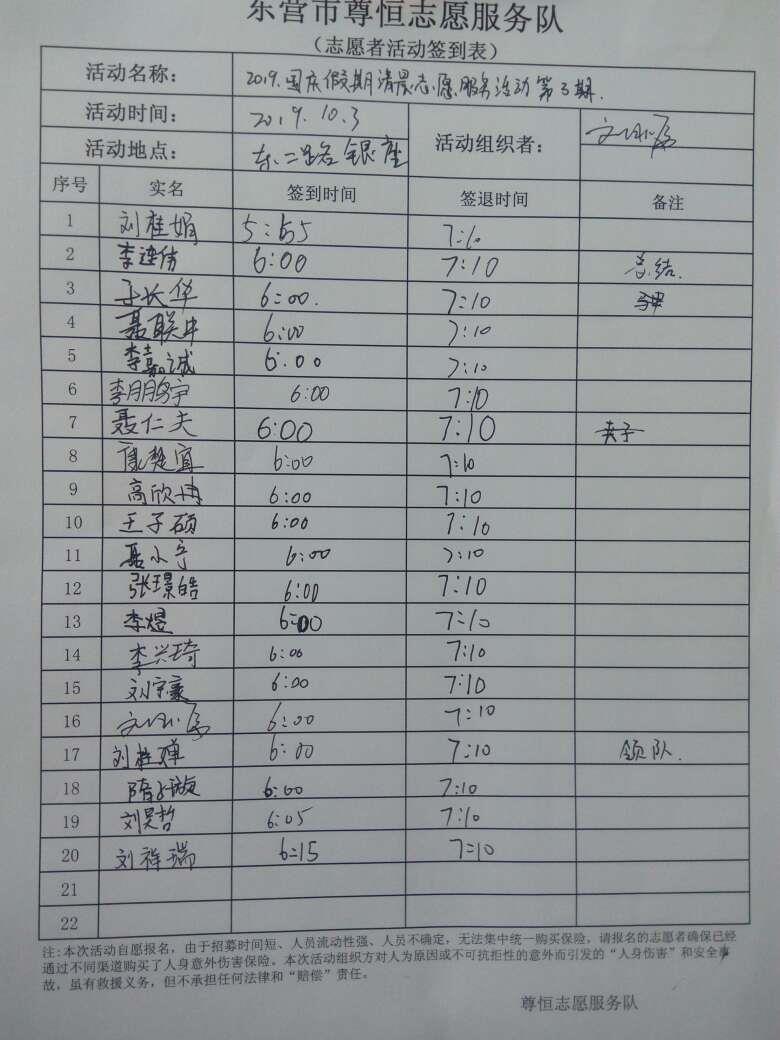 东营市尊恒志愿服务队
（志愿者活动签到表）
活动名称： 2019.国庆假期清晨志愿服务活动第3期.
活动时间： 2019.10.3 活动组织者：
活动地点： 东二路名银座
序号 实名 签到时间 签退时间 备注
1 刘桂娟 5:55 7:10
2 李连伟 6:00 7:10 总结.
3 于长华 6:00. 7:10
4 聂联中 6:00 7:10
5 李嘉诚 6.00 7:10
6 李朋鸿宇 6:00 7:10
7 聂仁夫 6:00 7:10
8 楚宜 6:00 7:10
9 高欣冉 6:00 7:10
10 王子硕 6:00 7:10
11 聂小宁 6:00 7:10
12 张璟皓 6:00 7:10
13 李煜 6:00 7:10
14 李兴琦 6:00 7:10
15 刘宇豪 6:00 7:10
16 6:00 7:10
17 刘桂婵 6:00 7:10 领队.
18 隋 璇 6:00 7:10
19 刘昊哲 6:05 7:10
20 刘祥瑞 6:15 7:10
21
22
注：本次活动自愿报名，由于招募时间短、人员流动性强、人员不确定，无法集中统一购买保险，请报名的志愿者确保已经
通过不同渠道购买了人身意外伤害保险。本次活动组织方对人为原因或不可抗拒性的意外而引发的“人身伤害”和安全事
故，虽有救援义务，但不承担任何法律和“赔偿”责任。
尊恒志愿服务队